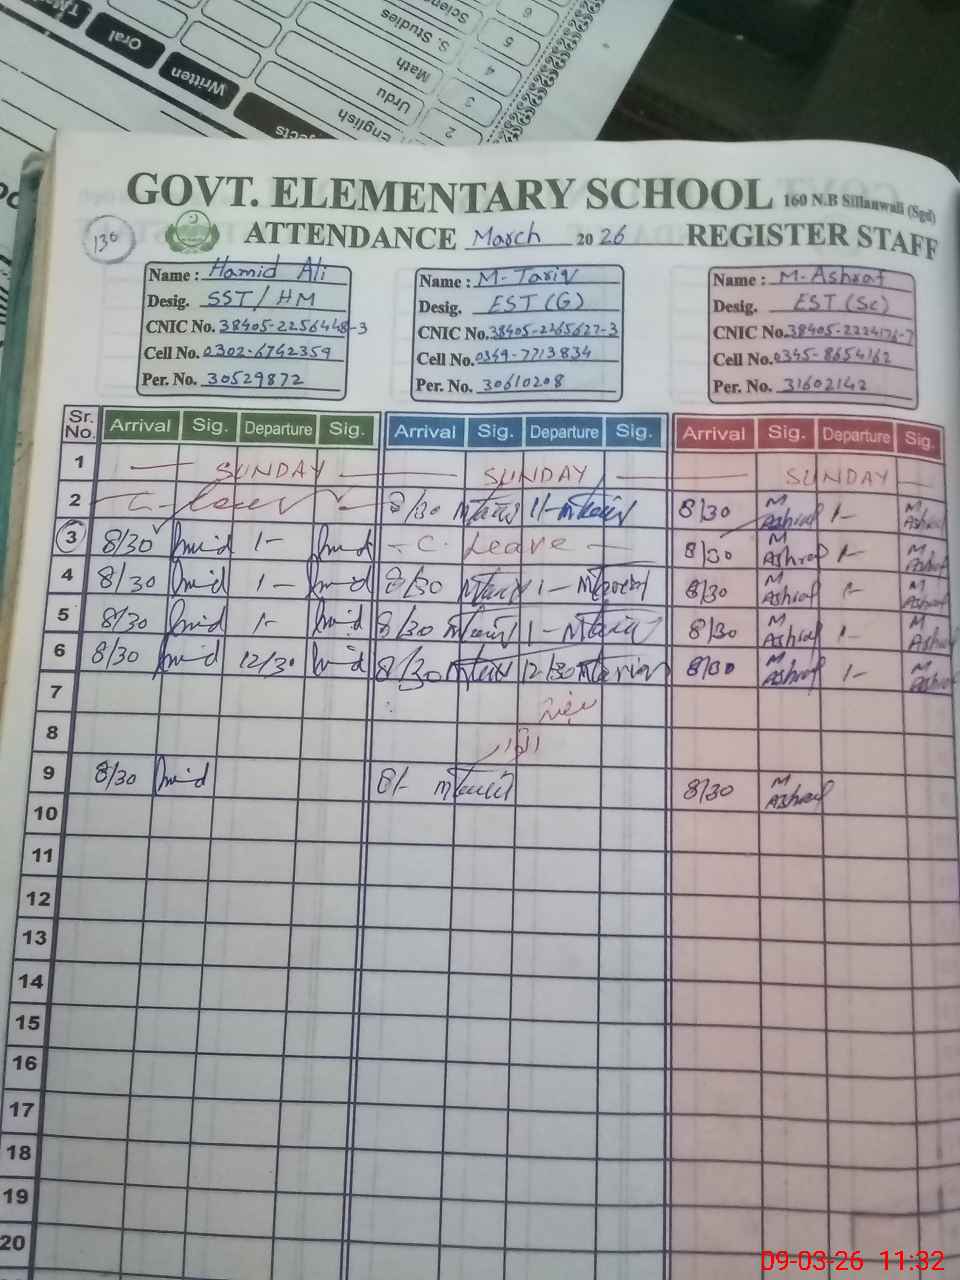 T.M
Oral
Written
Subjects
English
Urdu
Math
S. Studies
Science
2
3
4
5
6
GOVT. ELEMENTARY SCHOOL 160 N.B Sillanwali (Sgd)
130
ATTENDANCE March 2026 REGISTER STAFF
Name : Hamid Ali
Desig. SST/HM
CNIC No. 38405-2256448-3
Cell No. 0302-6742359
Per. No. 30529872
Name : M-Tariq
Desig. EST (G)
CNIC No. 38405-2265627-3
Cell No. 0349-7713834
Per. No. 30610208
Name : M-Ashraf
Desig. EST (Sc)
CNIC No. 38405-2224176-7
Cell No. 0345-8654162
Per. No. 31602142
Sr. No. Arrival Sig. Departure Sig. Arrival Sig. Departure Sig. Arrival Sig. Departure Sig.
1 SUNDAY SUNDAY SUNDAY
2 C-Leave 8/30 MTariq 1- MTariq 8/30 M Ashraf 1- M Ashraf
3 8/30 Hamid 1- Hamid - C. Leave - 8/30 M Ashraf 1- M Ashraf
4 8/30 Hamid 1- Hamid 8/30 MTariq 1- MTariq 8/30 M Ashraf 1- M Ashraf
5 8/30 Hamid 1- Hamid 8/30 MTariq 1- MTariq 8/30 M Ashraf 1- M Ashraf
6 8/30 Hamid 12/30 Hamid 8/30 MTariq 12/30 MTariq 8/30 M Ashraf 1- M Ashraf
7 ہفتہ
8 اتوار
9 8/30 Hamid 8/- MTariq 8/30 M Ashraf
10
11
12
13
14
15
16
17
18
19
20
09-03-26 11:32